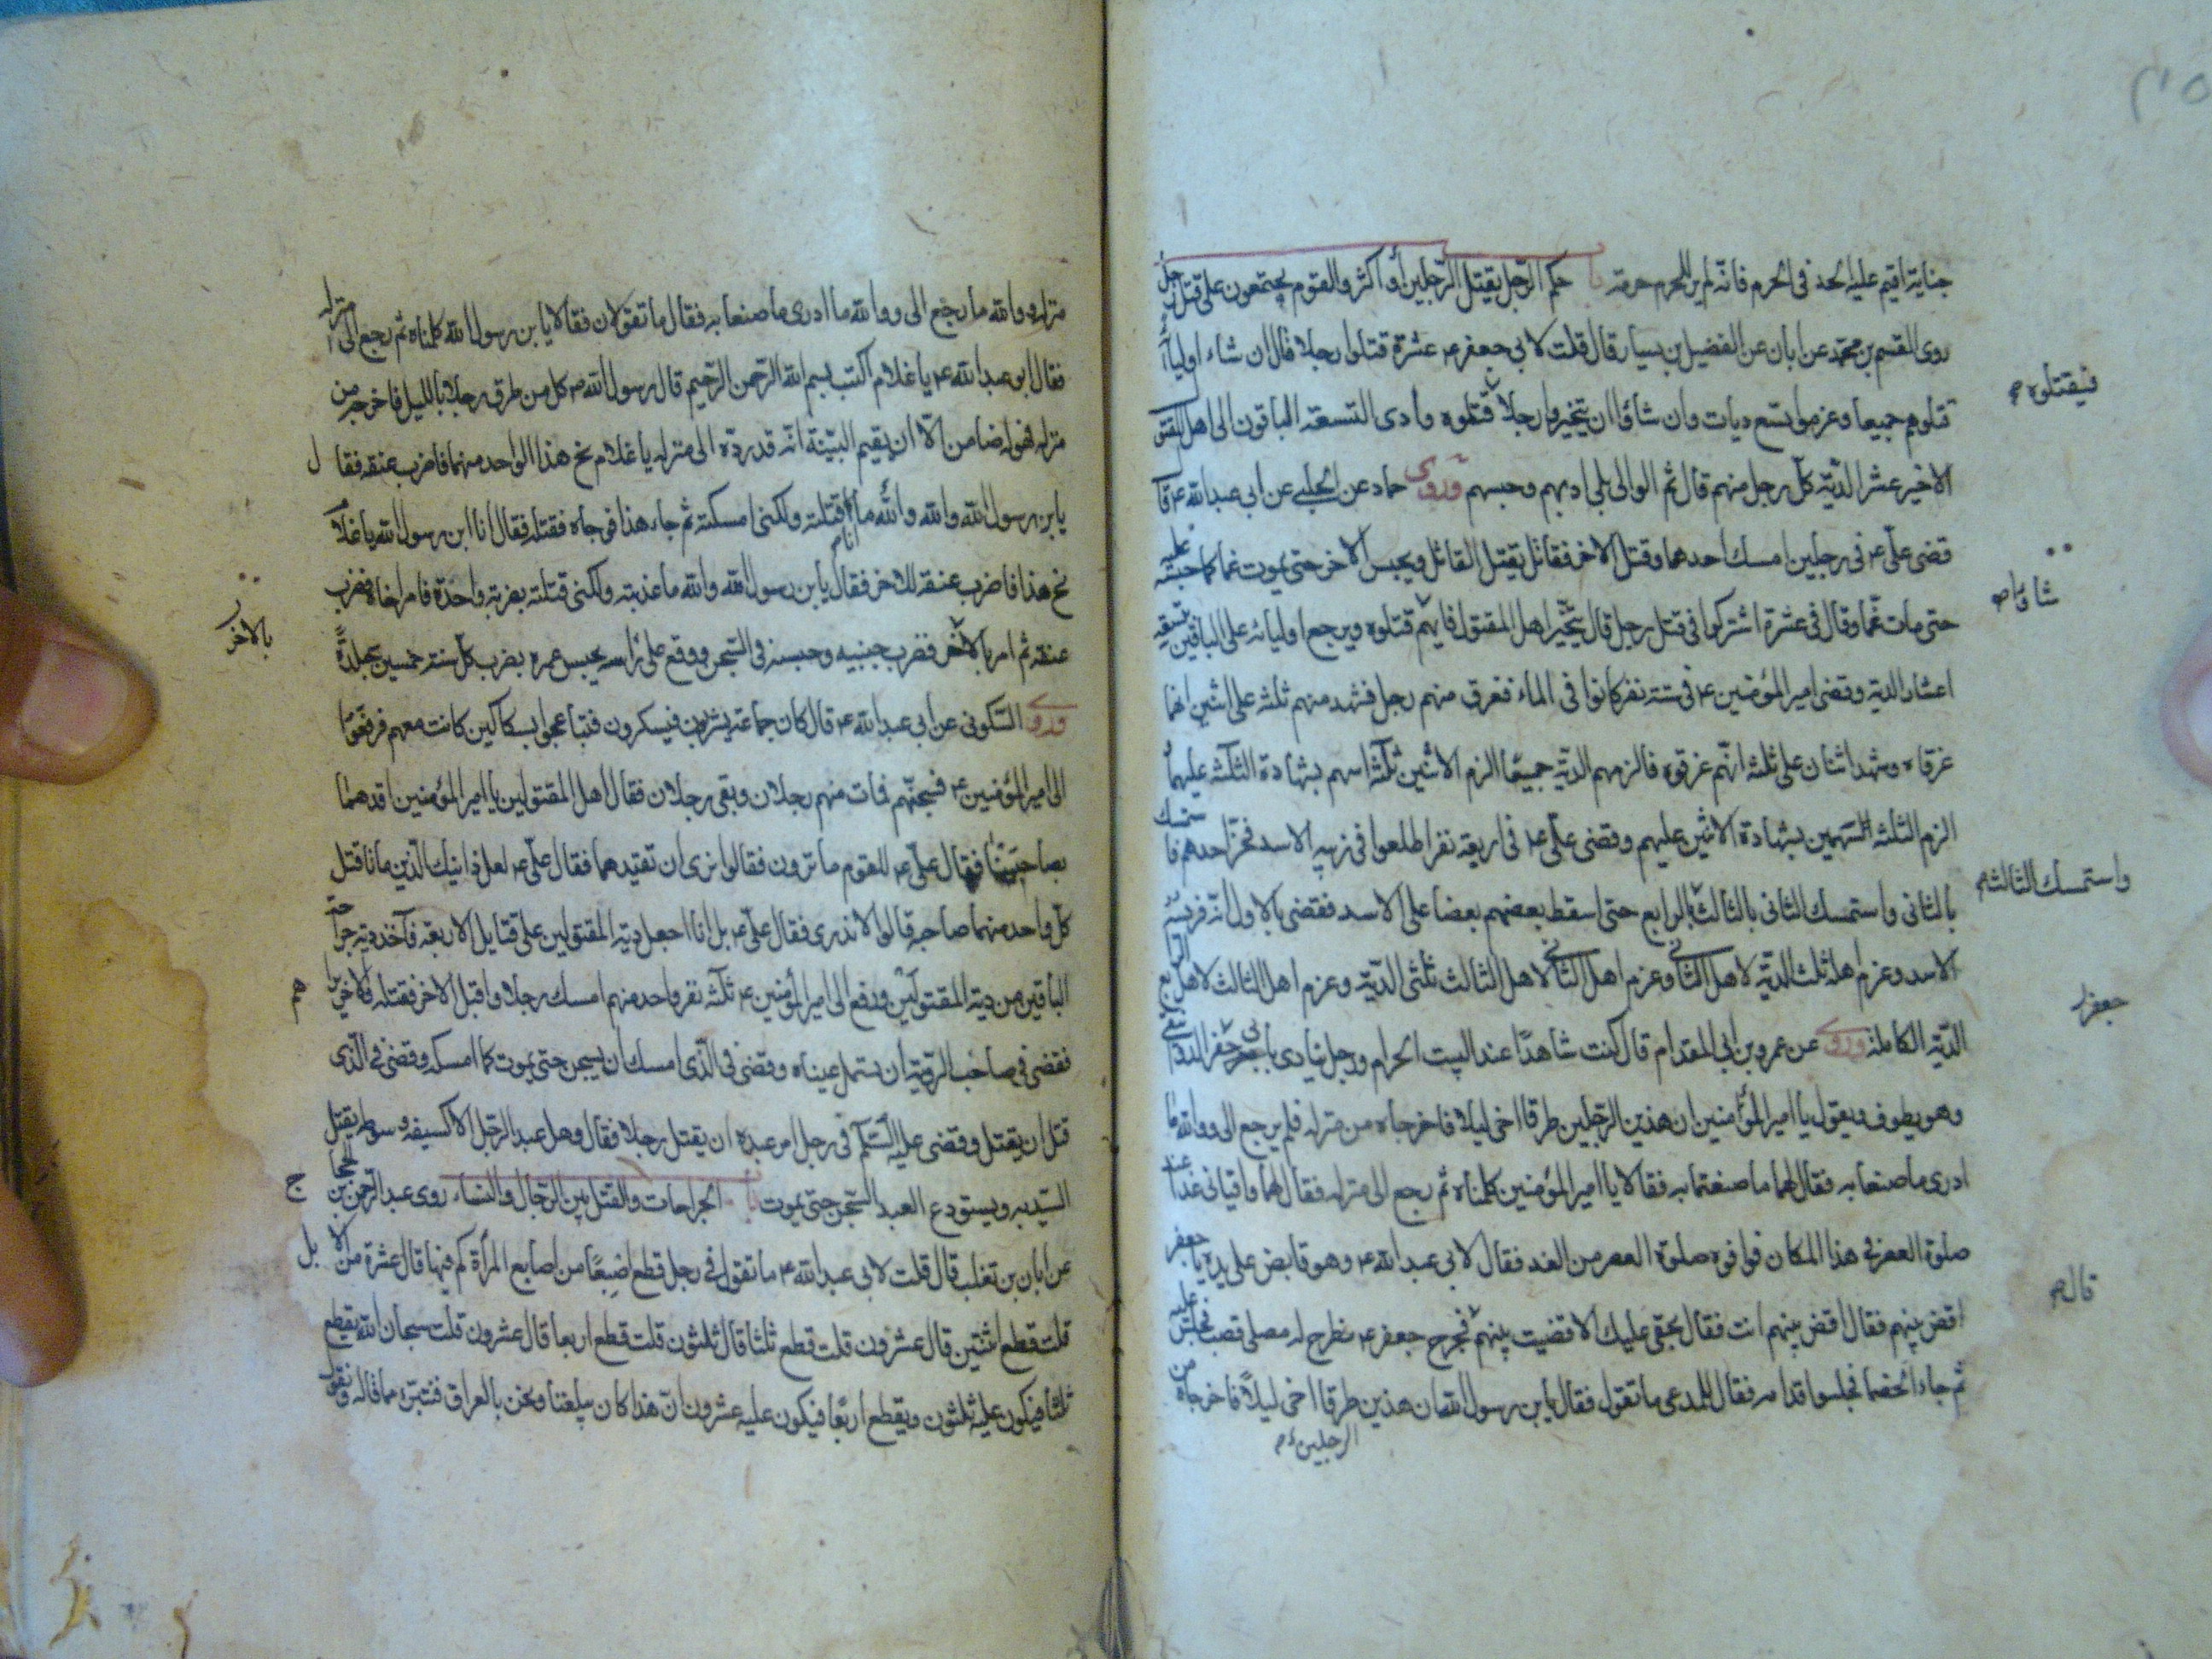 جناية اقيم عليه الحد في الحرم فانه لم ير للحرم حرمة باب حكم الرجل يقتل الرجلين أو اكثر والقوم يجتمعون على قتل رجل
روى القسم بن محمد عن ابان عن الفضيل بن يسار قال قلت لابي جعفر ع عشرة قتلوا رجلا قال ان شاء اولياؤه
قتلوهم جميعا وغرموا تسع ديات وان شاؤا ان يتخيروا رجلا قتلوه وادى التسعة الباقون الى اهل المقتول
فيقتلوه
الاخير عشر الدية كل رجل منهم قال ثم الوالى يلى ادبهم وحبسهم وروى حماد عن الحلبي عن ابى عبد الله ع قال
قضى على ع في رجلين امسك احدهما وقتل الاخر فقال يقتل القاتل ويحبس الاخر حتى يموت غما كما حبسه عليه
حتى مات غما وقال في عشرة اشتركوا في قتل رجل قال يخير اهل المقتول فايهم قتلوه ويرجع اوليائه على الباقين بتسعة
شاؤا
اعشار الدية وقضى امير المؤمنين ع في ستة نفر كانوا في الماء فغرق منهم رجل فشهد منهم ثلثة على اثنين انهما
غرقاه وشهد اثنان على ثلثة انهم غرقوه فالزمهم الدية جميعا الزم الاثنين ثلثة اسهم بشهادة الثلثة عليهما
الزم الثلثة السهمين بشهادة الاثنين عليهم وقضى على ع في اربعة نفر اطلعوا في زبية الاسد فخر احدهم فاستمسك
بالثانى واستمسك الثانى بالثالث بالرابع حتى اسقط بعضهم بعضا على الاسد فقضى بالاول انه فريسة
واستمسك الثالث
الاسد وغرم اهله ثلث الدية لاهل الثانى وغرم اهل الثانى لاهل الثالث ثلثى الدية وغرم اهل الثالث لاهل الرابع
الدية الكاملة وروى عن عمرو بن ابى المقدام قال كنت شاهدا عند البيت الحرام ورجل ينادى بابى جعفر الدوانيقى
جعفر
وهو يطوف ويقول يا امير المؤمنين ان هذين الرجلين طرقا اخى ليلا فاخرجاه من منزله فلم يرجع الى ووالله ما
ادرى ما صنعا به فقال لهما ما صنعتما به فقالا يا امير المؤمنين كلمناه ثم رجع الى منزله فقال لهما وافيانى غدا عند
صلوة العصر في هذا المكان فوافوه صلوة العصر من الغد فقال لابى عبد الله ع وهو قابض على يده يا جعفر
اقض بينهم فقال اقض بينهم انت فقال بحقى عليك الا قضيت بينهم فخرج جعفر ع فطرح له مصلى قصب فجلس عليه
قال
ثم جاء الخصما فجلسوا قدامه فقال للمدعى ما تقول فقال يا بن رسول الله ان هذين طرقا اخى ليلا فاخرجاه من
الرجلين
منزله ووالله ما رجع الى ووالله ما ادرى ما صنعا به فقال ما تقولان فقالا يا بن رسول الله كلمناه ثم رجع الى منزله
فقال ابو عبد الله ع يا غلام اكتب بسم الله الرحمن الرحيم قال رسول الله ص كل من طرق رجلا بالليل فاخرجه من
منزله فهو له ضامن الا ان يقيم البينة انه قد رده الى منزله يا غلام نح هذا الواحد منهما فاضرب عنقه فقال
يا بن رسول الله والله والله ما انا قتلته ولكنى امسكته ثم جاء هذا فوجاه فقتله فقال انا ابن رسول الله يا غلام
نح هذا فاضرب عنقه للاخر فقال يا بن رسول الله والله ما عذبته ولكنى قتلته بضربة واحدة فامر اخاه فضرب
عنقه ثم امر بالاخر فضرب جنبيه وحبسه في السجن ووقع على راسه يحبس عمره يضرب كل سنة خمسين جلدة
بالاخر
وروى السكونى عن ابى عبد الله ع قال كان جماعة يشربون فيسكرون فتباعجوا بسكاكين كانت معهم فرفعوا
الى امير المؤمنين ع فسجنهم فمات منهم رجلان وبقى رجلان فقال اهل المقتولين يا امير المؤمنين اقدهما
بصاحبينا فقال على ع للقوم ما ترون فقالوا نرى ان تقيدهما فقال على ع لعل ذانيك الذين ماتا قتل
كل واحد منهما صاحبه قالوا لا ندرى فقال على ع بل انا اجعل دية المقتولين على قبايل الاربعة فآخذ دية جراحة
الباقين من دية المقتولين ورفع الى امير المؤمنين ع ثلثة نفر واحد منهم امسك رجلا واقبل الاخر فقتله والاخر يراهم
فقضى في صاحب الروية ان يسمل عيناه وقضى في الذى امسك ان يسجن حتى يموت كما امسكه وقضى في الذى
قتل ان يقتل وقضى عليه السلم في رجل امر عبده ان يقتل رجلا فقال وهل عبد الرجل الا كسيفه وسوطه يقتل
السيد به ويستودع العبد السجن حتى يموت باب الجراحات والقتل بين الرجال والنساء روى عبد الرحمن بن الحجاج
عن ابان بن تغلب قال قلت لابى عبد الله ع ما تقول في رجل قطع اصبعا من اصابع المرأة كم فيها قال عشرة من الابل
قلت قطع اثنتين قال عشرون قلت قطع ثلثا قال ثلثون قلت قطع اربعا قال عشرون قلت سبحان الله يقطع
ثلثا فيكون عليه ثلثون ويقطع اربعا فيكون عليه عشرون ان هذا كان يبلغنا ونحن بالعراق فنتبرء مما قاله ونقول